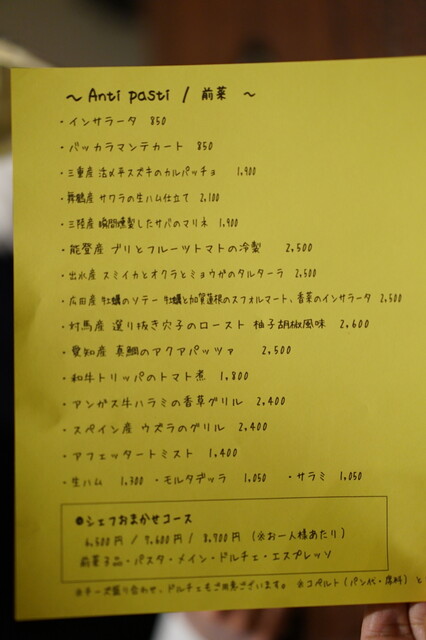 ～ Anti pasti / 前菜 ～
・インサラータ 850
・バッカラマンテカート 850
・三重産 活〆平スズキのカルパッチョ 1,900
・舞鶴産 サワラの生ハム仕立て 2,100
・三陸産 瞬間燻製したサバのマリネ 1,900
・能登産 ブリとフルーツトマトの冷製 2,500
・出水産 スミイカとオクラとミョウガのタルターラ 2,500
・広田産 牡蠣のソテー 牡蠣と加賀蓮根のスフォルマート、香菜のインサラータ 2,500
・対馬産 選り抜き穴子のロースト 柚子胡椒風味 2,600
・愛知産 真鯛のアクアパッツァ 2,500
・和牛トリッパのトマト煮 1,800
・アンガス牛ハラミの香草グリル 2,400
・スペイン産 ウズラのグリル 2,400
・アフェッタートミスト 1,400
・生ハム 1,300 ・モルタデッラ 1,050 ・サラミ 1,050
●シェフおまかせコース
6,500円 / 7,600円 / 8,700円 (※お一人様あたり)
前菜 品・パスタ・メイン・ドルチェ・エスプレッソ
※チーズ盛り合わせ、ドルチェもご用意ございます。 ※コペルト(パン代・席料)と